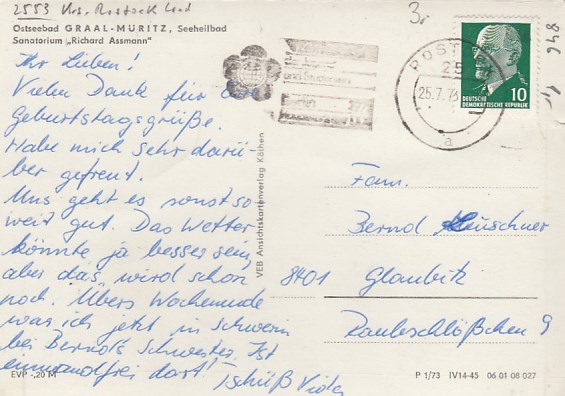 2553 Krs. Rostock Land
Ostseebad GRAAL-MÜRITZ, Seeheilbad
Sanatorium „Richard Assmann"
Ihr Lieben!
Vielen Dank für die
Geburtstagsgrüße.
Habe mich sehr darü-
ber gefreut.
Uns geht es sonst so
weit gut. Das Wetter
könnte ja besser sein,
aber das wird schon
noch. Übers Wochenende
war ich jetzt in Schwerin
bei Bernds Schwester. Ist
einwandfrei dort! Tschüß
EVP -,20 M
VEB Ansichtskartenverlag Köthen
3,-
ROSTOCK
25
25.7.73
a
10
DEUTSCHE
DEMOKRATISCHE REPUBLIK
Fam.
Bernd
8401 Glaubitz
Raubschlößchen 9
P 1/73 IV14-45 06 01 08 027